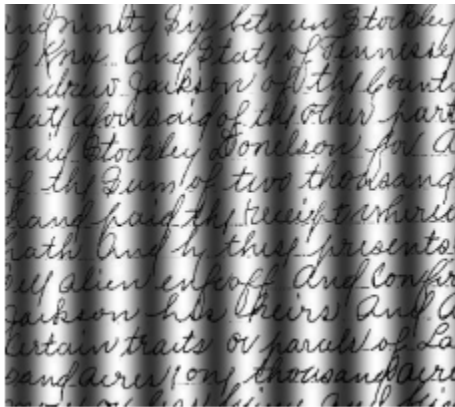 and ninety Six between Stockley
of Knox And State of Tennessey
Andrew Jackson of the County
State aforesaid of the other part
Said Stockley Donelson for a
of the Sum of two thousand
hand paid the receipt wherein
hath And by these presents
Sell alien enfeoff And Confir
Jackson his heirs And a
Certain traits or parcels of La
sand acres one thousand acre